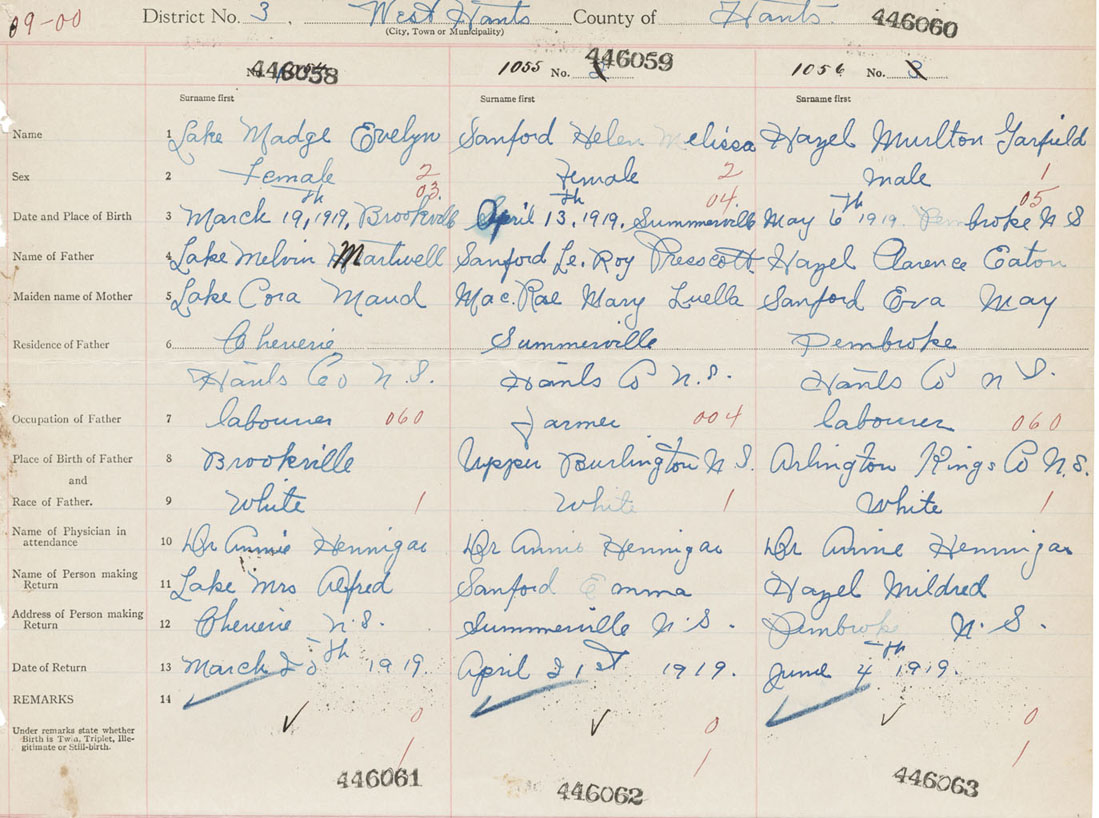 09-00 District No. 3. West Hants County of Hants. 446060
(City, Town or Municipality)
446058 1055 No. 446059 1056 No. 3
Surname first Surname first Surname first
Name 1 Lake Madge Evelyn Sanford Helen Melissa Hazel Murlton Garfield
Sex 2 Female 2 Female 2 male 1
03. 04. 05
Date and Place of Birth 3 March 19th, 1919, Brookville April 13th, 1919, Summerville May 6th 1919. Pembroke N S
Name of Father 4 Lake Melvin Martwell Sanford Le. Roy Presscott Hazel Clarence Eaton
Maiden name of Mother 5 Lake Cora Maud Mac. Rae Mary Luella Sanford Eva May
Residence of Father 6 Cheverie Summerville Pembroke
Hants Co N.S. Hants Co N.S. Hants Co N S.
Occupation of Father 7 labourer 060 farmer 004 labourer 060
Place of Birth of Father 8 Brookville Upper Burlington N S. Arlington Kings Co N.S.
and
Race of Father. 9 White 1 White 1 White 1
Name of Physician in attendance 10 Dr Annie Hennigar Dr Annie Hennigar Dr Annie Hennigar
Name of Person making Return 11 Lake Mrs Alfred Sanford Emma Hazel Mildred
Address of Person making Return 12 Cheverie N.S. Summerville N.S. Pembroke N.S.
Date of Return 13 March th 1919. April 21st 1919. June 4th 1919.
REMARKS 14
Under remarks state whether Birth is Twin, Triplet, Illegitimate or Still-birth. ✓ 0 ✓ 0 ✓ 0
1 1 1
446061 446062 446063